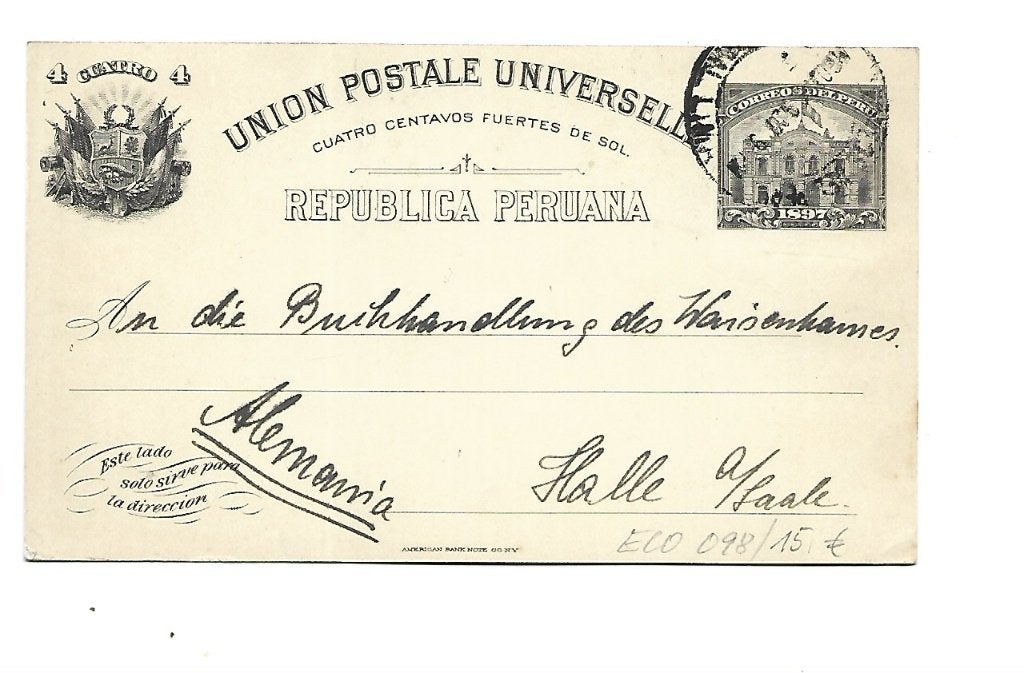 4 CUATRO 4
UNION POSTALE UNIVERSELLE
CUATRO CENTAVOS FUERTES DE SOL.
REPUBLICA PERUANA
CORREOS DEL PERU
1897
An die Buchhandlung des Waisenhauses.
Alemania
Este lado
solo sirve para
la direccion
Halle a/Saale.
AMERICAN BANK NOTE CO. NY
ECO 098/15,- €